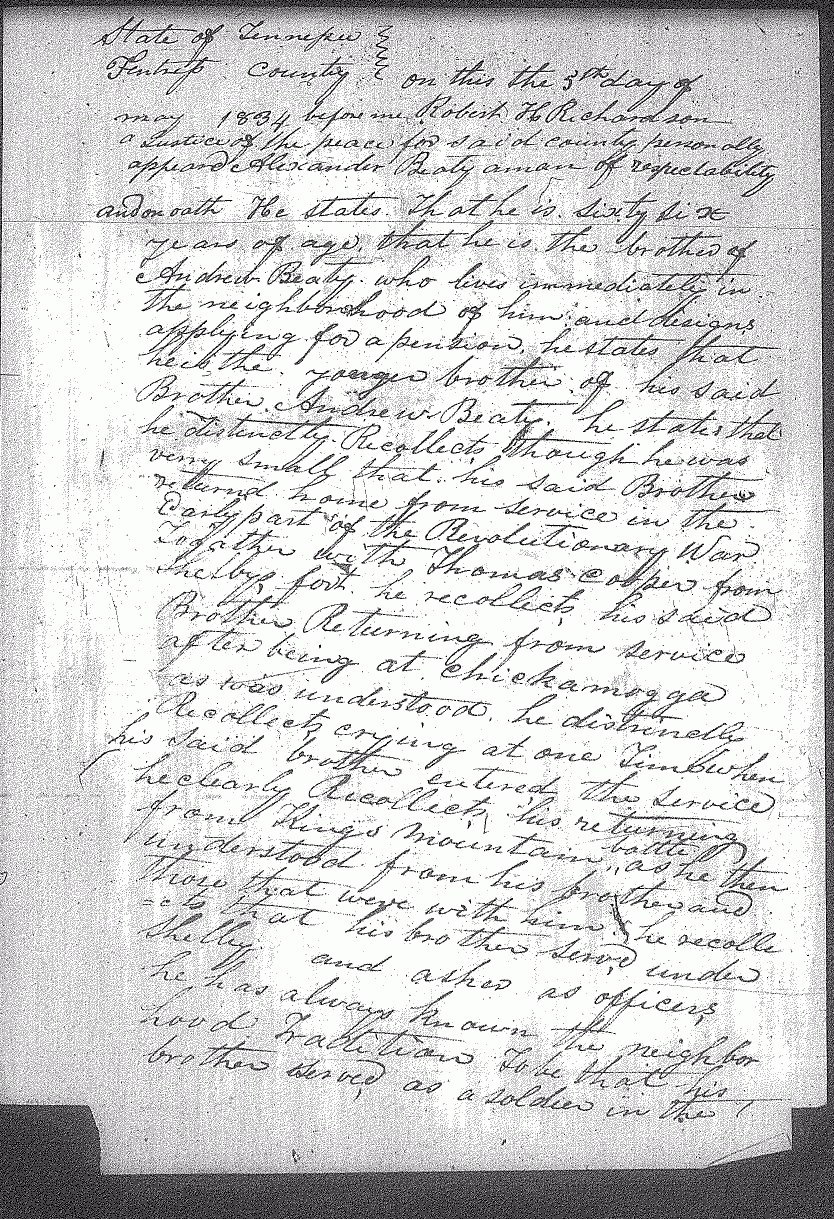 State of Tennessee }
Fentress County } on this the 5th day of
may 1834 before me Robert H Richardson
a Justice of the peace for said county personally
appeard Alexander Beaty a man of respectability
and on oath He states. That he is sixty six
years of age. that he is the brother of
Andrew Beaty. who lives immediately in
the neighborhood of him and designs
applying for a pension. he states that
he is the younger brother of his said
Brother. Andrew Beaty. he states that
he distinctly Recollects though he was
very small that his said Brother
returnd home from service in the
Early part of the Revolutionary War
Together with Thomas Cooper from
Shelbys fort. he recollects his said
Brother Returning from service
after being at Chickamogga
as was understood. he distinctly
Recollects crying at one Time when
his said brother entered the service
he clearly Recollects his returning
from Kings mountain battle as he then
understood from his brother and
those that were with him. he recolle
=cts that his brother served under
Shelby and asher as officers,
he has always known the neighbor
hood Tradition To be that his
brother served as a soldier in the